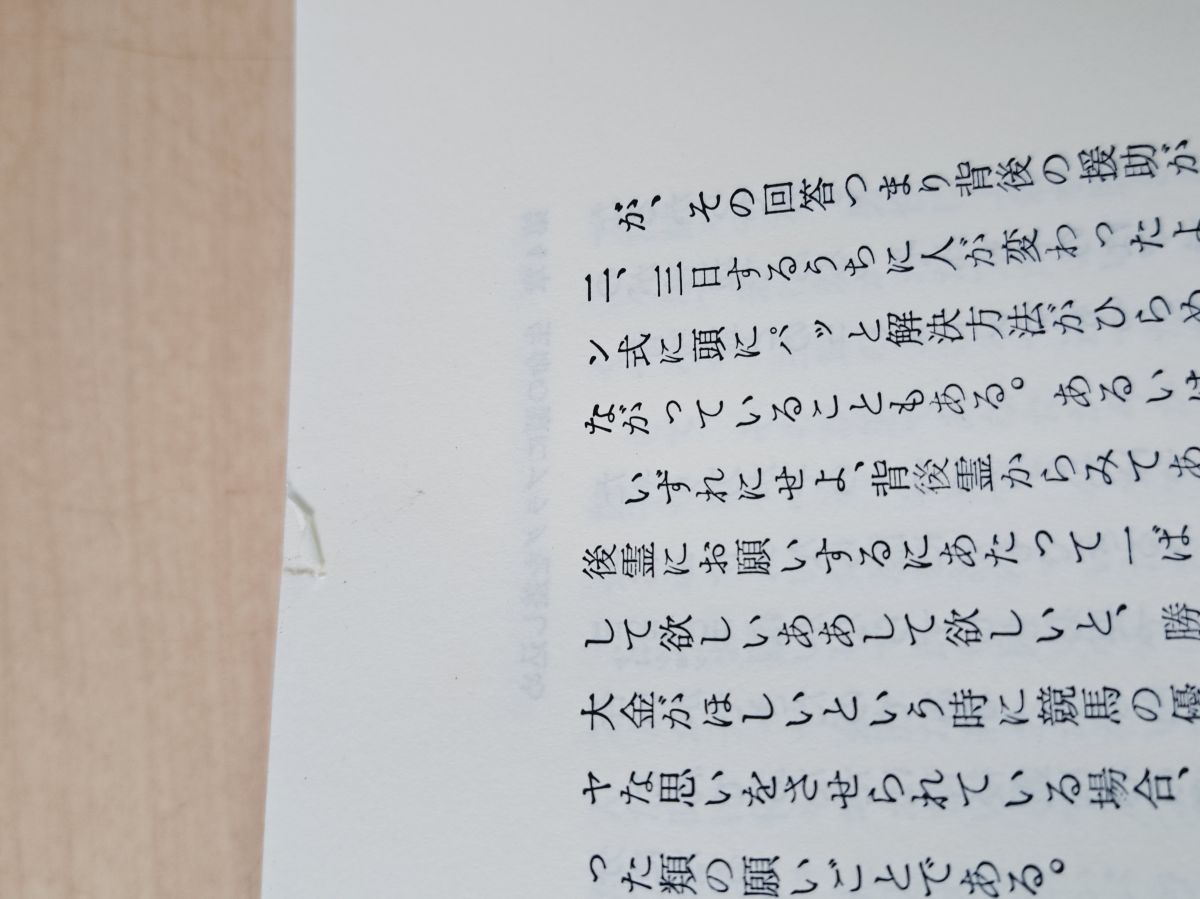 が、その回答つまり背後の援助が
二、三日するうちに人が変わったよ
ン式に頭にパッと解決方法がひらめ
ながっていることもある。あるいは
いずれにせよ、背後霊からみてあ
後霊にお願いするにあたって一ば
して欲しいああして欲しいと、勝
大金がほしいという時に競馬の優
ヤな思いをさせられている場合、
った類の願いごとである。